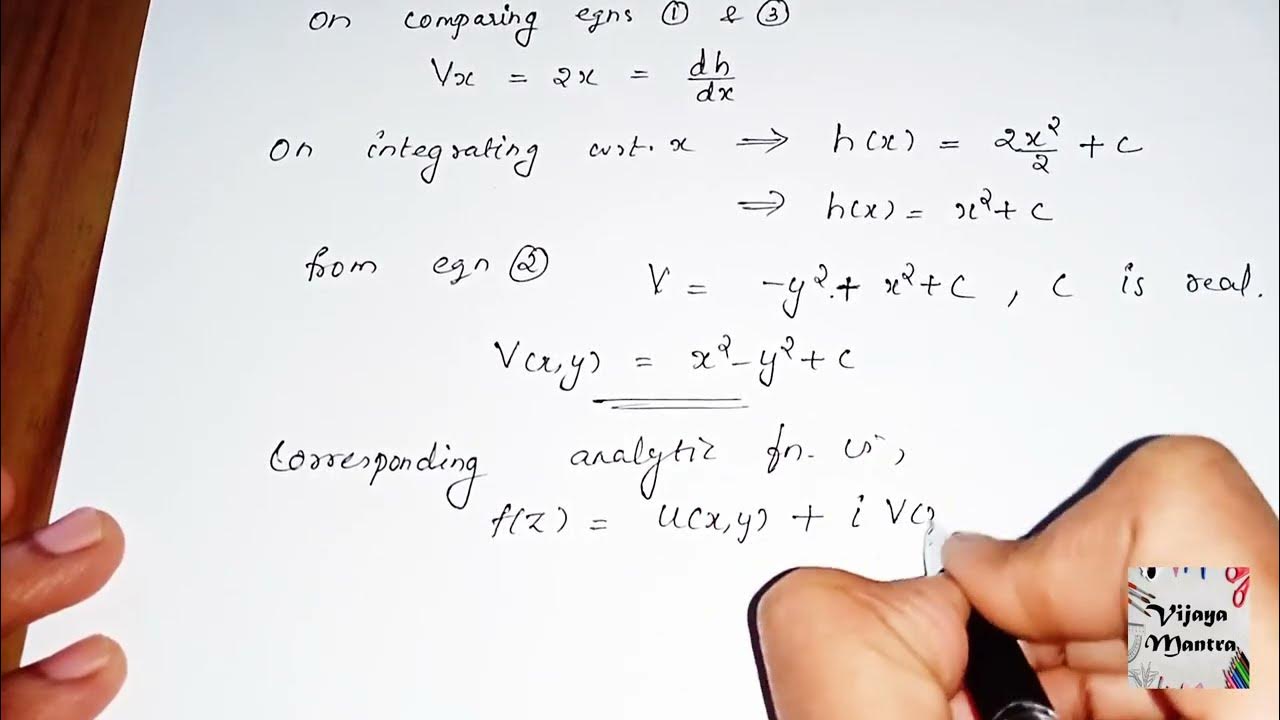 On comparing eqns ① & ③
Vx = 2x = dh/dx
On integrating w.r.t. x ⇒ h(x) = 2x²/2 + c
⇒ h(x) = x² + c
from eqn ② V = -y² + x² + c , c is real.
V(x,y) = x² - y² + c
Corresponding analytic fn. is,
f(z) = u(x,y) + i V(
Vijaya
Mantra